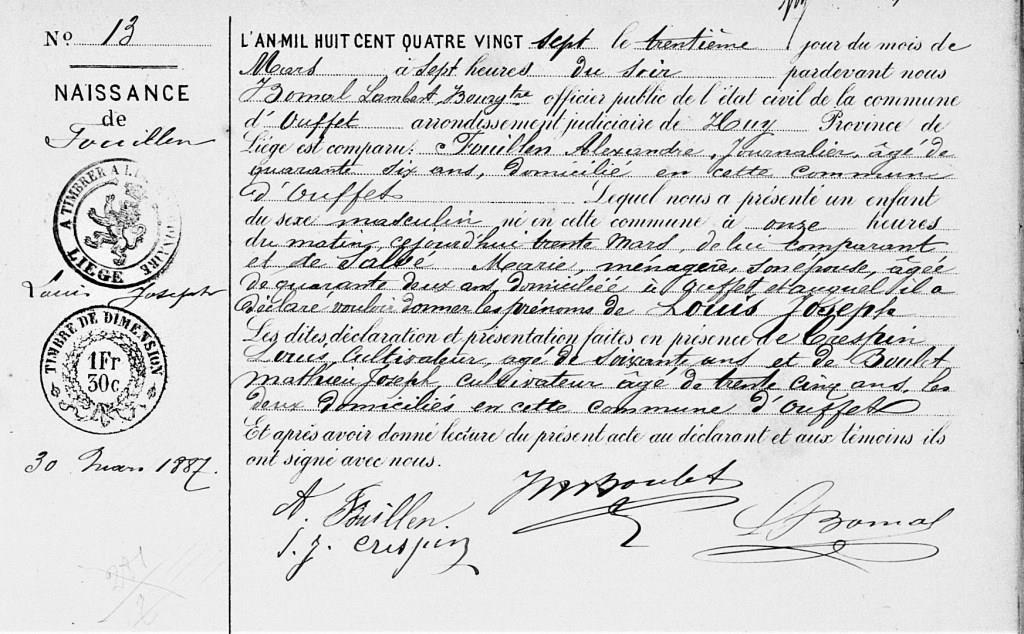 No 13
NAISSANCE
de
Fouillen
A TIMBRER A L'EXTRAORDINAIRE
LIEGE
Louis Joseph
TIMBRE DE DIMENSION
1Fr
30c.
30 Mars 1887.
L'AN MIL HUIT CENT QUATRE VINGT sept le trentième jour du mois de
Mars à sept heures du soir pardevant nous
Bomal Lambert, Bourgtre officier public de l'état civil de la commune
d'Ouffet arrondissement judiciaire de Huy Province de
Liège est comparu: Fouillen Alexandre, Journalier, âgé de
quarante six ans, domicilié en cette commune
d'Ouffet Lequel nous a présenté un enfant
du sexe masculin né en cette commune à onze heures
du matin, cejourd'hui trente Mars, de lui comparant
et de Marie, ménagère, son épouse, âgée
de quarante deux ans, domiciliée à Ouffet et auquel il a
déclaré vouloir donner les prénoms de Louis Joseph
Les dites déclaration et présentation faites en présence de Crespin
Louis, Cultivateur, agé de soixante ans et de Boulet
Mathieu Joseph, cultivateur âgé de trente cinq ans, les
deux domiciliés en cette commune d'Ouffet
Et après avoir donné lecture du présent acte au déclarant et aux témoins ils
ont signé avec nous.
A. Fuillen.
Boulet
L Bomal
J. J. Crespin